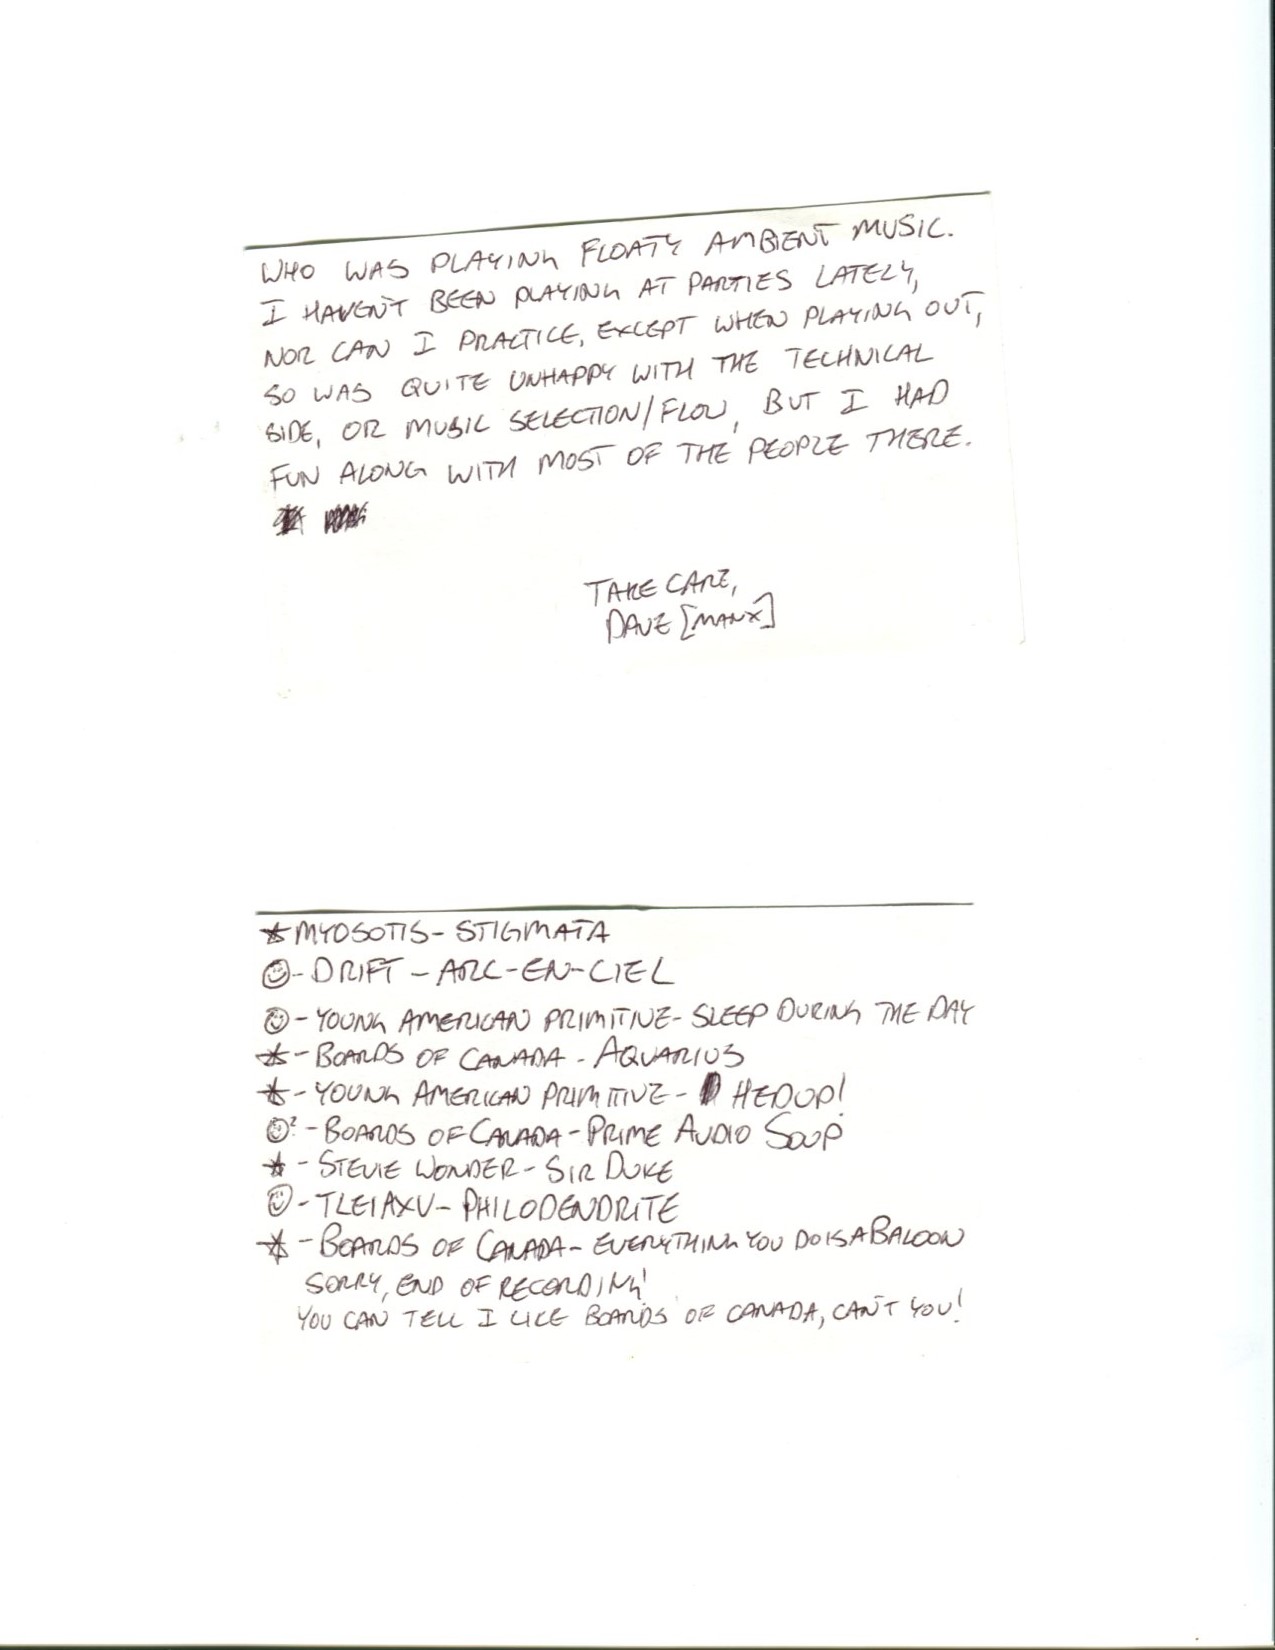 WHO WAS PLAYING FLOATY AMBIENT MUSIC.
I HAVEN'T BEEN PLAYING AT PARTIES LATELY,
NOR CAN I PRACTICE, EXCEPT WHEN PLAYING OUT,
SO WAS QUITE UNHAPPY WITH THE TECHNICAL
SIDE, OR MUSIC SELECTION/FLOW, BUT I HAD
FUN ALONG WITH MOST OF THE PEOPLE THERE.
TAKE CARE,
DAVE [MANX]
★ MYOSOTIS - STIGMATA
☺ - DRIFT - ARC-EN-CIEL
☺ - YOUNG AMERICAN PRIMITIVE - SLEEP DURING THE DAY
★ - BOARDS OF CANADA - AQUARIUS
★ - YOUNG AMERICAN PRIMITIVE - HEDUP!
☺² - BOARDS OF CANADA - PRIME AUDIO SOUP
★ - STEVIE WONDER - SIR DUKE
☺ - TLEIAXU - PHILODENDRITE
★ - BOARDS OF CANADA - EVERYTHING YOU DO IS A BALOON
SORRY, END OF RECORDING!
YOU CAN TELL I LIKE BOARDS OF CANADA, CAN'T YOU!